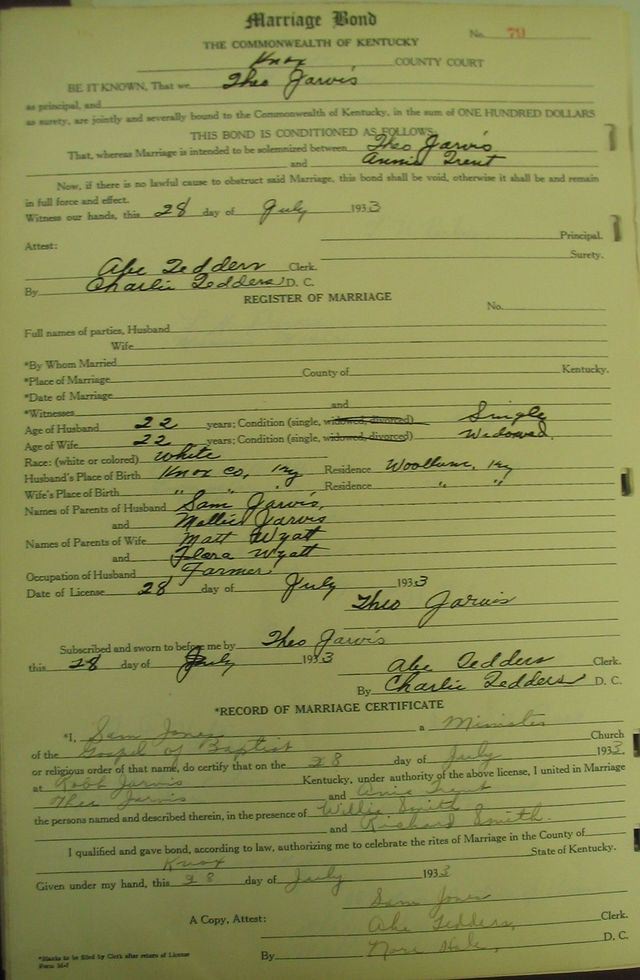 Marriage Bond
No. 711
THE COMMONWEALTH OF KENTUCKY
Knox COUNTY COURT
BE IT KNOWN, That we Theo Jarvis
as principal, and
as surety, are jointly and severally bound to the Commonwealth of Kentucky, in the sum of ONE HUNDRED DOLLARS
THIS BOND IS CONDITIONED AS FOLLOWS
That, whereas Marriage is intended to be solemnized between Theo Jarvis
and Annie Trent
Now, if there is no lawful cause to obstruct said Marriage, this bond shall be void, otherwise it shall be and remain
in full force and effect.
Witness our hands, this 28 day of July 1933
Principal.
Attest: Surety.
Abe Tedders Clerk.
By Charlie Tedders D. C.
REGISTER OF MARRIAGE
No.
Full names of parties, Husband
Wife
*By Whom Married
*Place of Marriage County of Kentucky.
*Date of Marriage
*Witnesses and
Age of Husband 22 years; Condition (single, widowed, divorced) Single
Age of Wife 22 years; Condition (single, widowed, divorced) Widowed.
Race: (white or colored) White
Husband's Place of Birth Knox Co, Ky Residence Woollum, Ky
Wife's Place of Birth " " " Residence " "
Names of Parents of Husband Sam Jarvis,
and Mollie Jarvis
Names of Parents of Wife Matt Wyatt
and Flora Wyatt
Occupation of Husband Farmer
Date of License 28 day of July 1933
Theo Jarvis
Subscribed and sworn to before me by Theo Jarvis
this 28 day of July 1933
Abe Tedders Clerk.
By Charlie Tedders D. C.
*RECORD OF MARRIAGE CERTIFICATE
*I, Sam Jones a Minister
of the Gospel of Baptist Church
or religious order of that name, do certify that on the 28 day of July 1933
at Robt Jarvis Kentucky, under authority of the above license, I united in Marriage
Theo Jarvis and Anie Trent
the persons named and described therein, in the presence of Willie Smith
and Richard Smith.
I qualified and gave bond, according to law, authorizing me to celebrate the rites of Marriage in the County of
Knox State of Kentucky.
Given under my hand, this 28 day of July 1933
Sam Jones
A Copy, Attest: Abe Tedders, Clerk.
By Nora Hale, D. C.
*Blanks to be filed by Clerk after return of License
Form 36-1